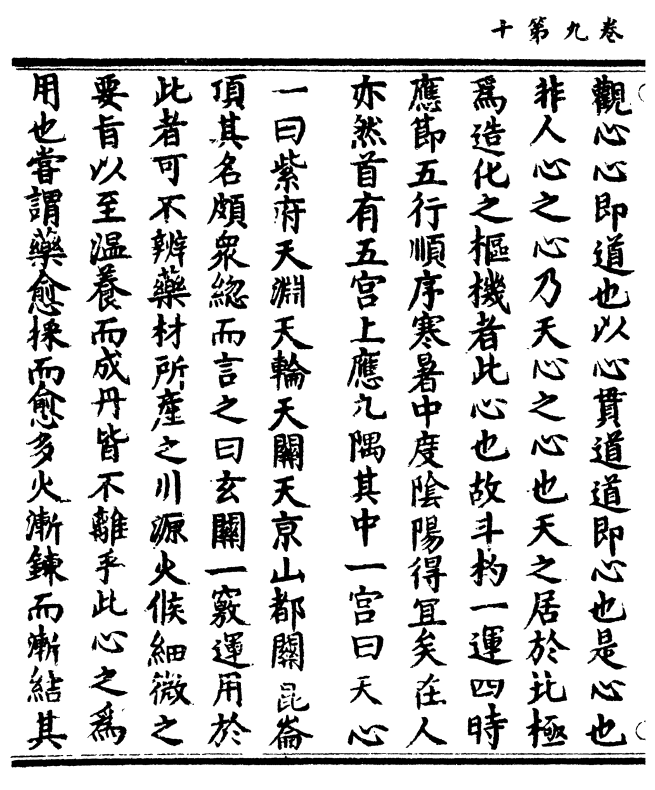 卷九第十
觀心心即道也以心貫道道即心也是心也
非人心之心乃天心之心也天之居於北極
爲造化之樞機者此心也故斗杓一運四時
應節五行順序寒暑中度陰陽得冝矣在人
亦然首有五宮上應九隅其中一宮曰天心
一曰紫府天淵天輪天關天京山都關崑崙
頂其名頗衆總而言之曰玄關一竅運用於
此者可不辨藥材所産之川源火候細微之
要旨以至温養而成丹皆不離乎此心之爲
用也嘗謂藥愈採而愈多火漸鍊而漸結其